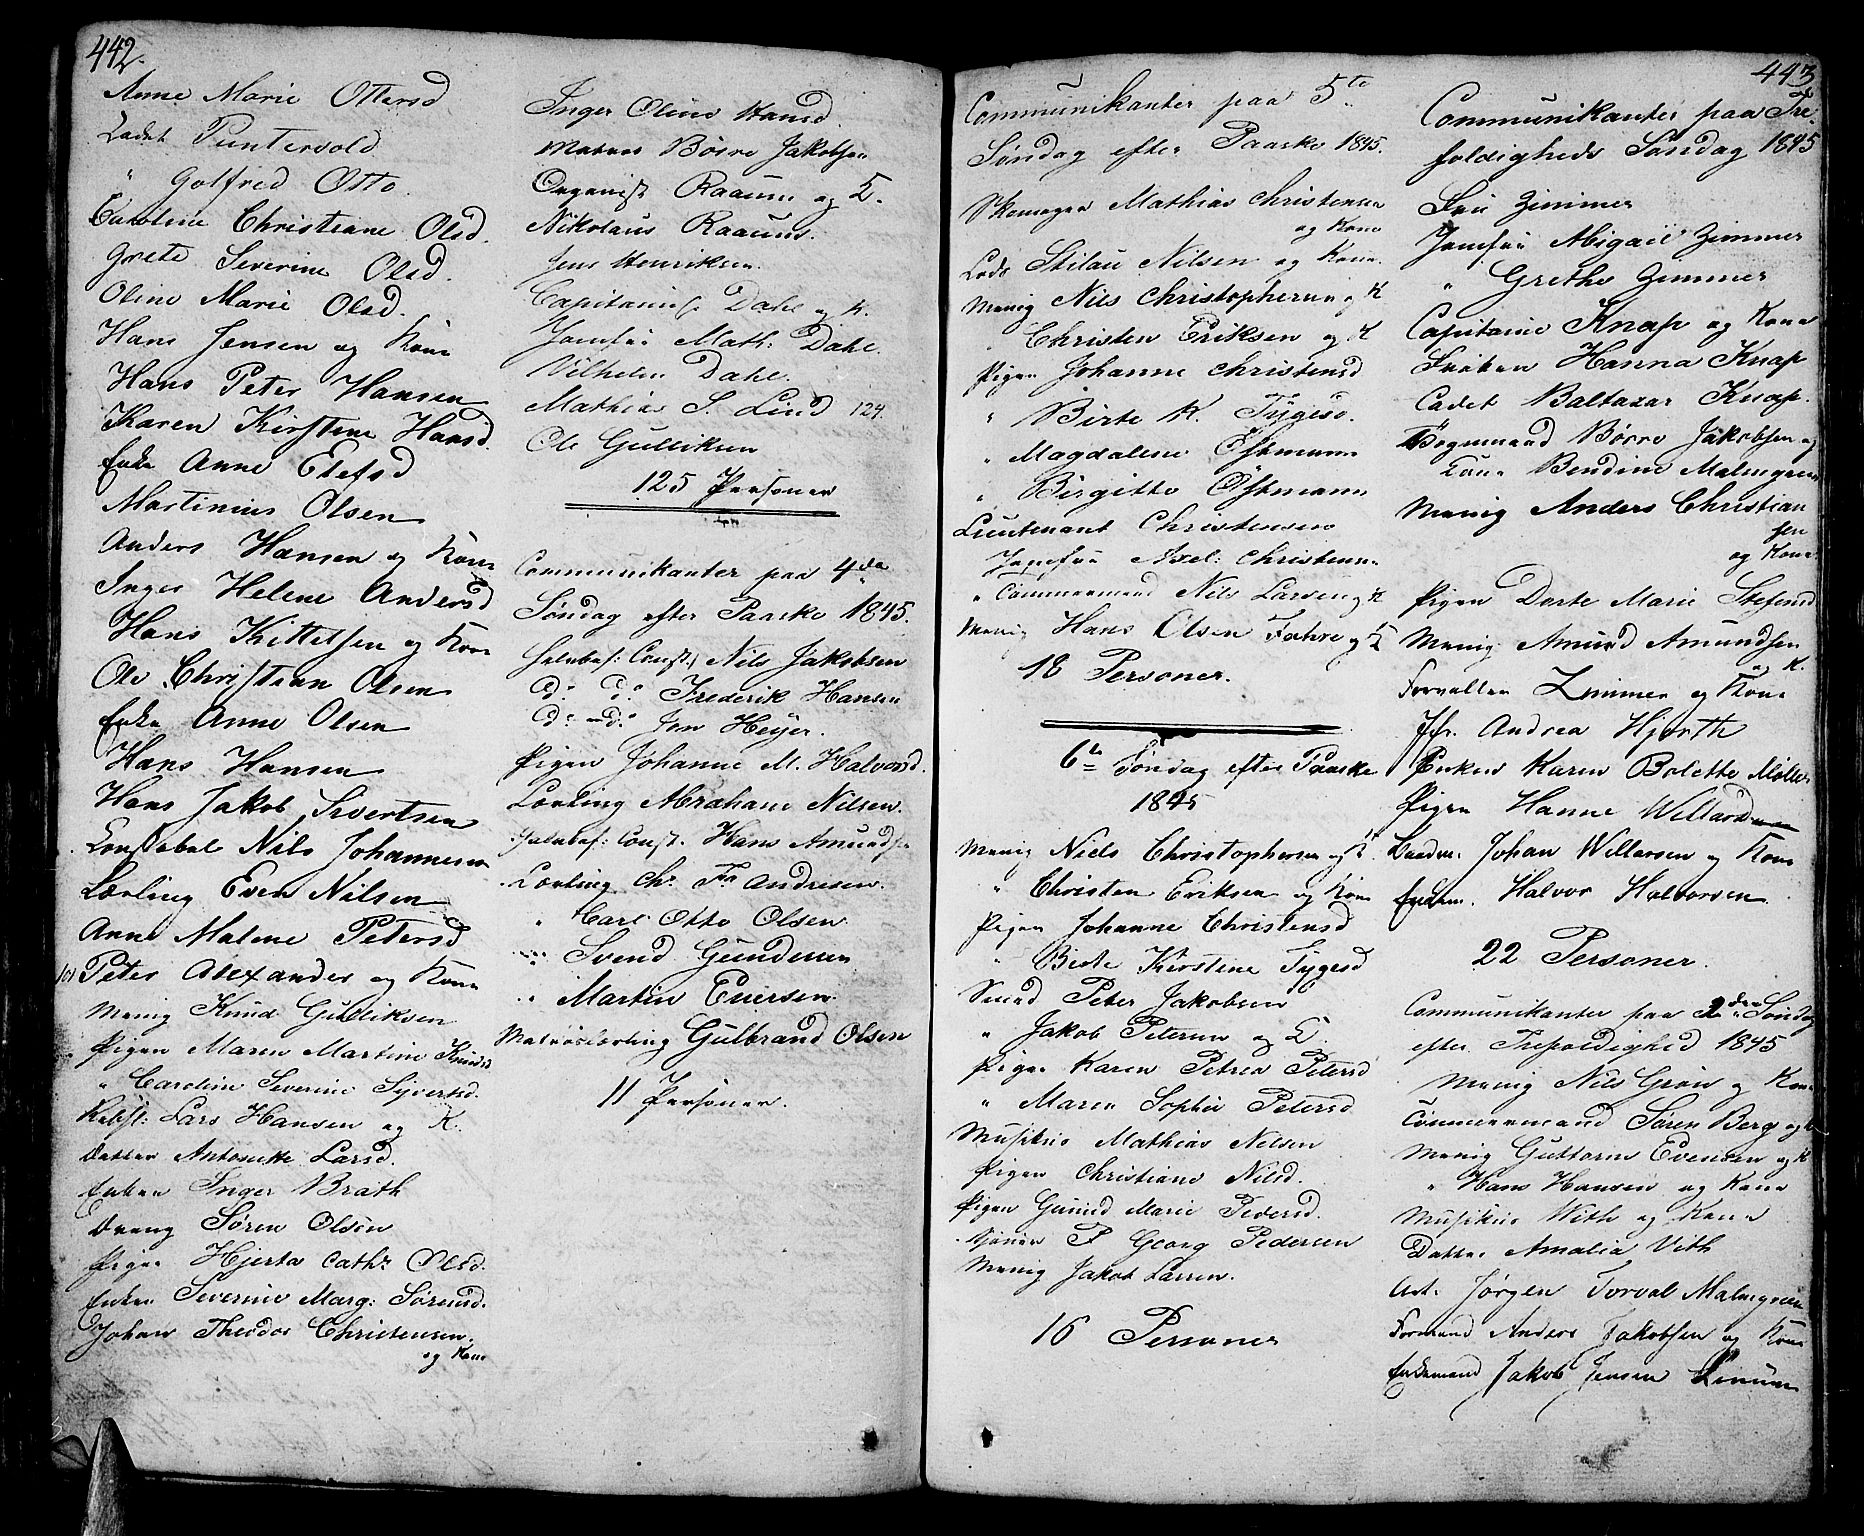 442.
Anne Marie Ottersd
Cadet Puntervold
" Gotfred Otto.
Caroline Christiane Olsd.
Grete Severine Olsd.
Oline Marie Olsd.
Hans Jensen og Kone
Hans Peter Hansen
Karen Kirstene Hansd.
Enke Anne Elefsd
Martinius Olsen
Anders Hansen og Kone
Inger Helene Andersd
Hans Kittelsen og Kone
Ole Christian Olsen
Enke Anne Olsen
Hans Hansen
Hans Jakob Sivertsen
Constabel Nils Johannesen
Lærling Even Nilsen
Anne Malene Petersd
Peter Alexander og Kone
Menig Knud Gulliksen
Pigen Maren Martine Knudsd
" Caroline Severine Syversd.
Lars Hansen og K.
Datter Antonette Larsd.
Enken Inger Brath
Dreng Søren Olsen
Pigen Hjerta Cathr. Olsd.
Enken Severine Marg: Sørensd.
Johan Theodor Christensen
og Kone
Inger Oline Hansd.
Matros Børre Jakobsen
Organist Raaum og K.
Nikolaus Raaum.
Jens Henriksen.
Capitain Dahl og K.
Jomfru Math: Dahl.
Vilhelm Dahl.
Mathias S. Lind 124.
Ole Gulliksen
125 Personer
Communikanter paa 4de
Søndag efter Paaske 1845.
Halvbef: Const. Nils Jakobsen
do do Frederik Hansen
do do Jon Heyer.
Pigen Johanne M. Halvorsd.
Lærling Abraham Nilsen.
Halvbef: Const. Hans Amundsen
Lærling Chr. Fr. Andresen.
" Carl Otto Olsen
" Svend Gundersen
" Martin Eversen
Matroslærling Gulbrand Olsen
11 Personer.
443
Communikanter paa 5te
Søndag efter Paaske 1845.
Skomager Mathias Christensen
og Kone
Lods Stilau Nilsen og Kone.
Menig Nils Christophersen og K
" Christen Eriksen og K
Pigen Johanne Christensd
" Birte K. Tygesd.
" Magdalene Østmann
" Birgitte Østmann
Lieutenant Christensen
Jomfru Axel: Christensen
" Tømmermand Nils Larsen og K
Menig Hans Olsen Fahre og K
18 Personer.
6te Søndag efter Paaske
1845
Menig Niels Christophersen og K.
" Christen Eriksen og Kone
Pigen Johanne Christensd
" Birte Kirstine Tygesd
Svend Peter Jakobsen
" Jakob Petersen og K.
Pigen Karen Petrea Petersd
" Maren Sophie Petersd
Musikus Mathias Nelsen
Pigen Christiane Nilsd.
Pigen Gunild Marie Pedersd.
P Georg Pedersen
Menig Jakob Larsen.
16 Personer
Communikanter paa Tre-
foldigheds Søndag 1845
Fru Zimmer
Jomfru Abigaïl Zimmer
" Grethe Zimmer
Capitaine Knap og Kone
Frøken Hanna Knap
Cadet Baltazar Knap.
Bøgemand Børre Jakobsen og
Kone Bendine Malmgreen
Menig Anders Christian
sen
og Kone
Pigen Dorte Marie Stefensd
Menig Amund Amundsen
og K.
Forvalter Zimmer og Kone
Jfr. Andrea Hjorth
Enken Karen Bolette Møller
Pigen Hanne Willard
Johan Willarsen og Kone
Enkem. Halvor Halvorsen
22 Personer.
Communikanter paa 2den Søndag
efter Trefoldighed 1845
Menig Nils Grøn og Kone
Tømmermand Søren Berg og K
Menig Guttorm Evensen og K
" Hans Hansen og Kone
Musikus With og Kone
Datter Amalia Vith
Art. Jørgen Torval Malmgreen
Formand Anders Jakobsen og Kone
Enkemand Jakob Jensen Linum